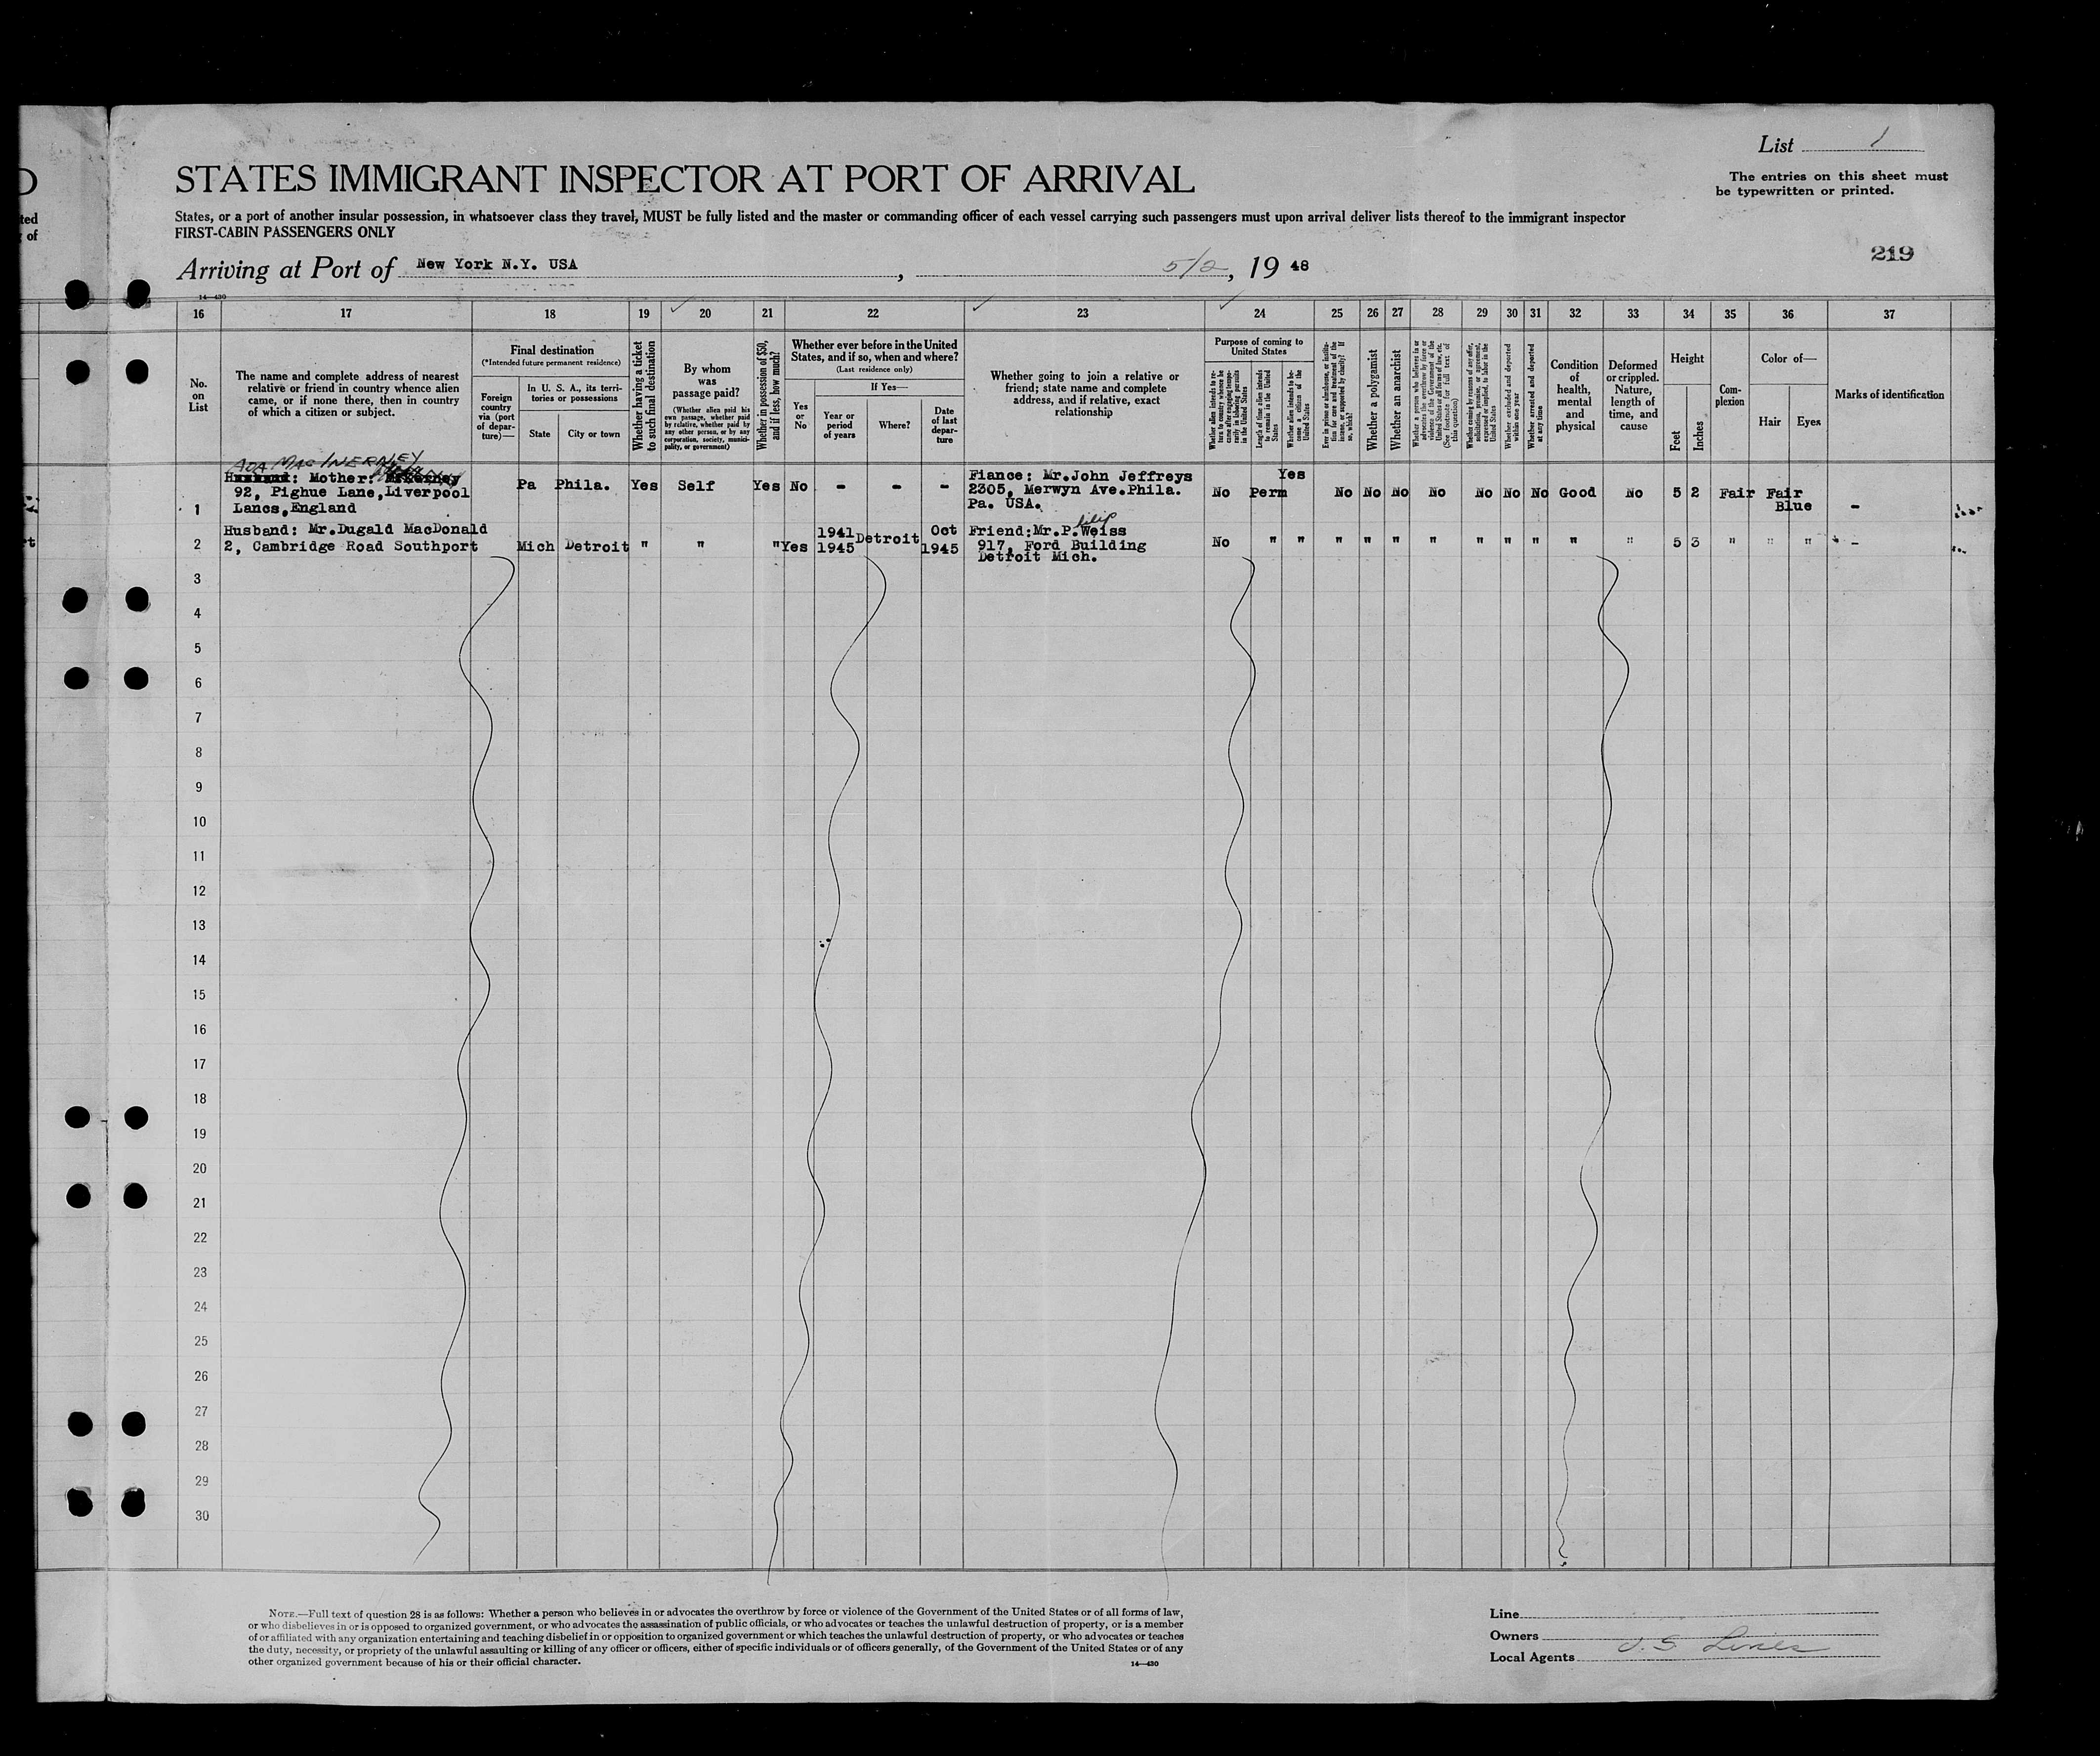 List 1
The entries on this sheet must
be typewritten or printed.
STATES IMMIGRANT INSPECTOR AT PORT OF ARRIVAL
States, or a port of another insular possession, in whatsoever class they travel, MUST be fully listed and the master or commanding officer of each vessel carrying such passengers must upon arrival deliver lists thereof to the immigrant inspector
FIRST-CABIN PASSENGERS ONLY
219
Arriving at Port of New York N.Y. USA, 5/2, 19 48
14—430
16 17 18 19 20 21 22 23 24 25 26 27 28 29 30 31 32 33 34 35 36 37
No. on List
The name and complete address of nearest
relative or friend in country whence alien
came, or if none there, then in country
of which a citizen or subject.
Final destination
(*Intended future permanent residence)
Foreign country via (port of departure)—
In U. S. A., its territories or possessions
State
City or town
Whether having a ticket to such final destination
By whom was passage paid?
(Whether alien paid his own passage, whether paid by relative, whether paid by any other person, or by any corporation, society, municipality, or government)
Whether in possession of $50, and if less, how much?
Whether ever before in the United
States, and if so, when and where?
(Last residence only)
Yes or No
If Yes—
Year or period of years
Where?
Date of last departure
Whether going to join a relative or
friend; state name and complete
address, and if relative, exact
relationship
Purpose of coming to United States
Whether alien intends to return to country whence he came after engaging temporarily in laboring pursuits in the United States
Length of time alien intends to remain in the United States
Whether alien intends to become a citizen of the United States
Ever in prison or almshouse, or institution for care and treatment of the insane, or supported by charity? If so, which?
Whether a polygamist
Whether an anarchist
Whether a person who believes in or advocates the overthrow by force or violence of the Government of the United States or all forms of law, etc. (See footnote for full text of this question)
Whether coming by reason of any offer, solicitation, promise, or agreement, expressed or implied, to labor in the United States
Whether excluded and deported within one year
Whether arrested and deported at any time
Condition of health, mental and physical
Deformed or crippled. Nature, length of time, and cause
Height
Feet
Inches
Complexion
Color of—
Hair
Eyes
Marks of identification
ADA MACINERNEY
: Mother:
92, Pighue Lane,Liverpool
Lancs,England
1 Pa Phila. Yes Self Yes No - - -
Fiance: Mr.John Jeffreys
2305, Merwyn Ave.Phila.
Pa. USA.
No Perm Yes No No No No No No No Good No 5 2 Fair Fair Blue -
Husband: Mr.Dugald MacDonald
2, Cambridge Road Southport
2 Mich Detroit " " " Yes 1941 1945 Detroit Oct 1945
Friend:Mr.P. Weiss
917, Ford Building
Detroit Mich.
No " " " " " " " " " " " 5 3 " " " -
3
4
5
6
7
8
9
10
11
12
13
14
15
16
17
18
19
20
21
22
23
24
25
26
27
28
29
30
NOTE.—Full text of question 28 is as follows: Whether a person who believes in or advocates the overthrow by force or violence of the Government of the United States or of all forms of law,
or who disbelieves in or is opposed to organized government, or who advocates the assassination of public officials, or who advocates or teaches the unlawful destruction of property, or is a member
of or affiliated with any organization entertaining and teaching disbelief in or opposition to organized government or which teaches the unlawful destruction of property, or who advocates or teaches
the duty, necessity, or propriety of the unlawful assaulting or killing of any officer or officers, either of specific individuals or of officers generally, of the Government of the United States or of any
other organized government because of his or their official character.
14—430
Line
Owners
Local Agents U. S. Lines